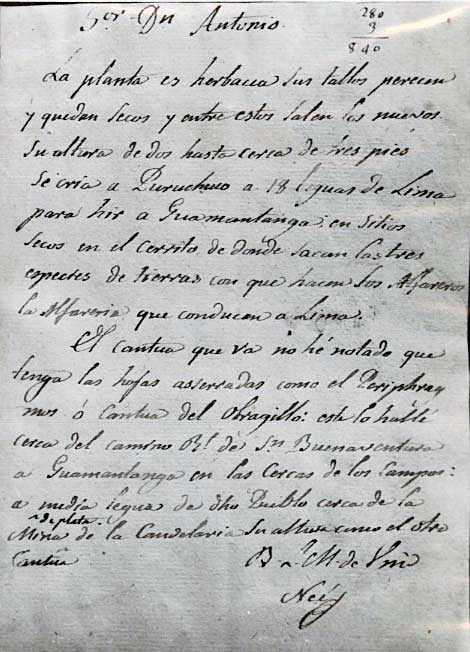 Sor. Dn Antonio.
280
3
840
La planta es herbacea sus tallos perecen
y quedan secos y entre estos salen los nuevos.
Su altura de dos hasta cerca de tres pies
Se cria a Puruchuco a 18 leguas de Lima
para hir a Guamantanga: en sitios
secos en el Cerrito de donde sacan las tres
especies de tierras con que hacen los Alfareros
la Alfareria que conducen a Lima.
El cantua que va no hé notado que
tenga las hojas asserradas como el Periphrag
mos ó Cantua del Obragillo: este lo hallé
cerca del camino Rl. de Sn Buenaventura
a Guamantanga en las Cercas de los Campos:
a media legua de dho Pueblo cerca de la
de plata
Mina de la Candelaria Su altura como el otro
Cantua
B M. de Vm